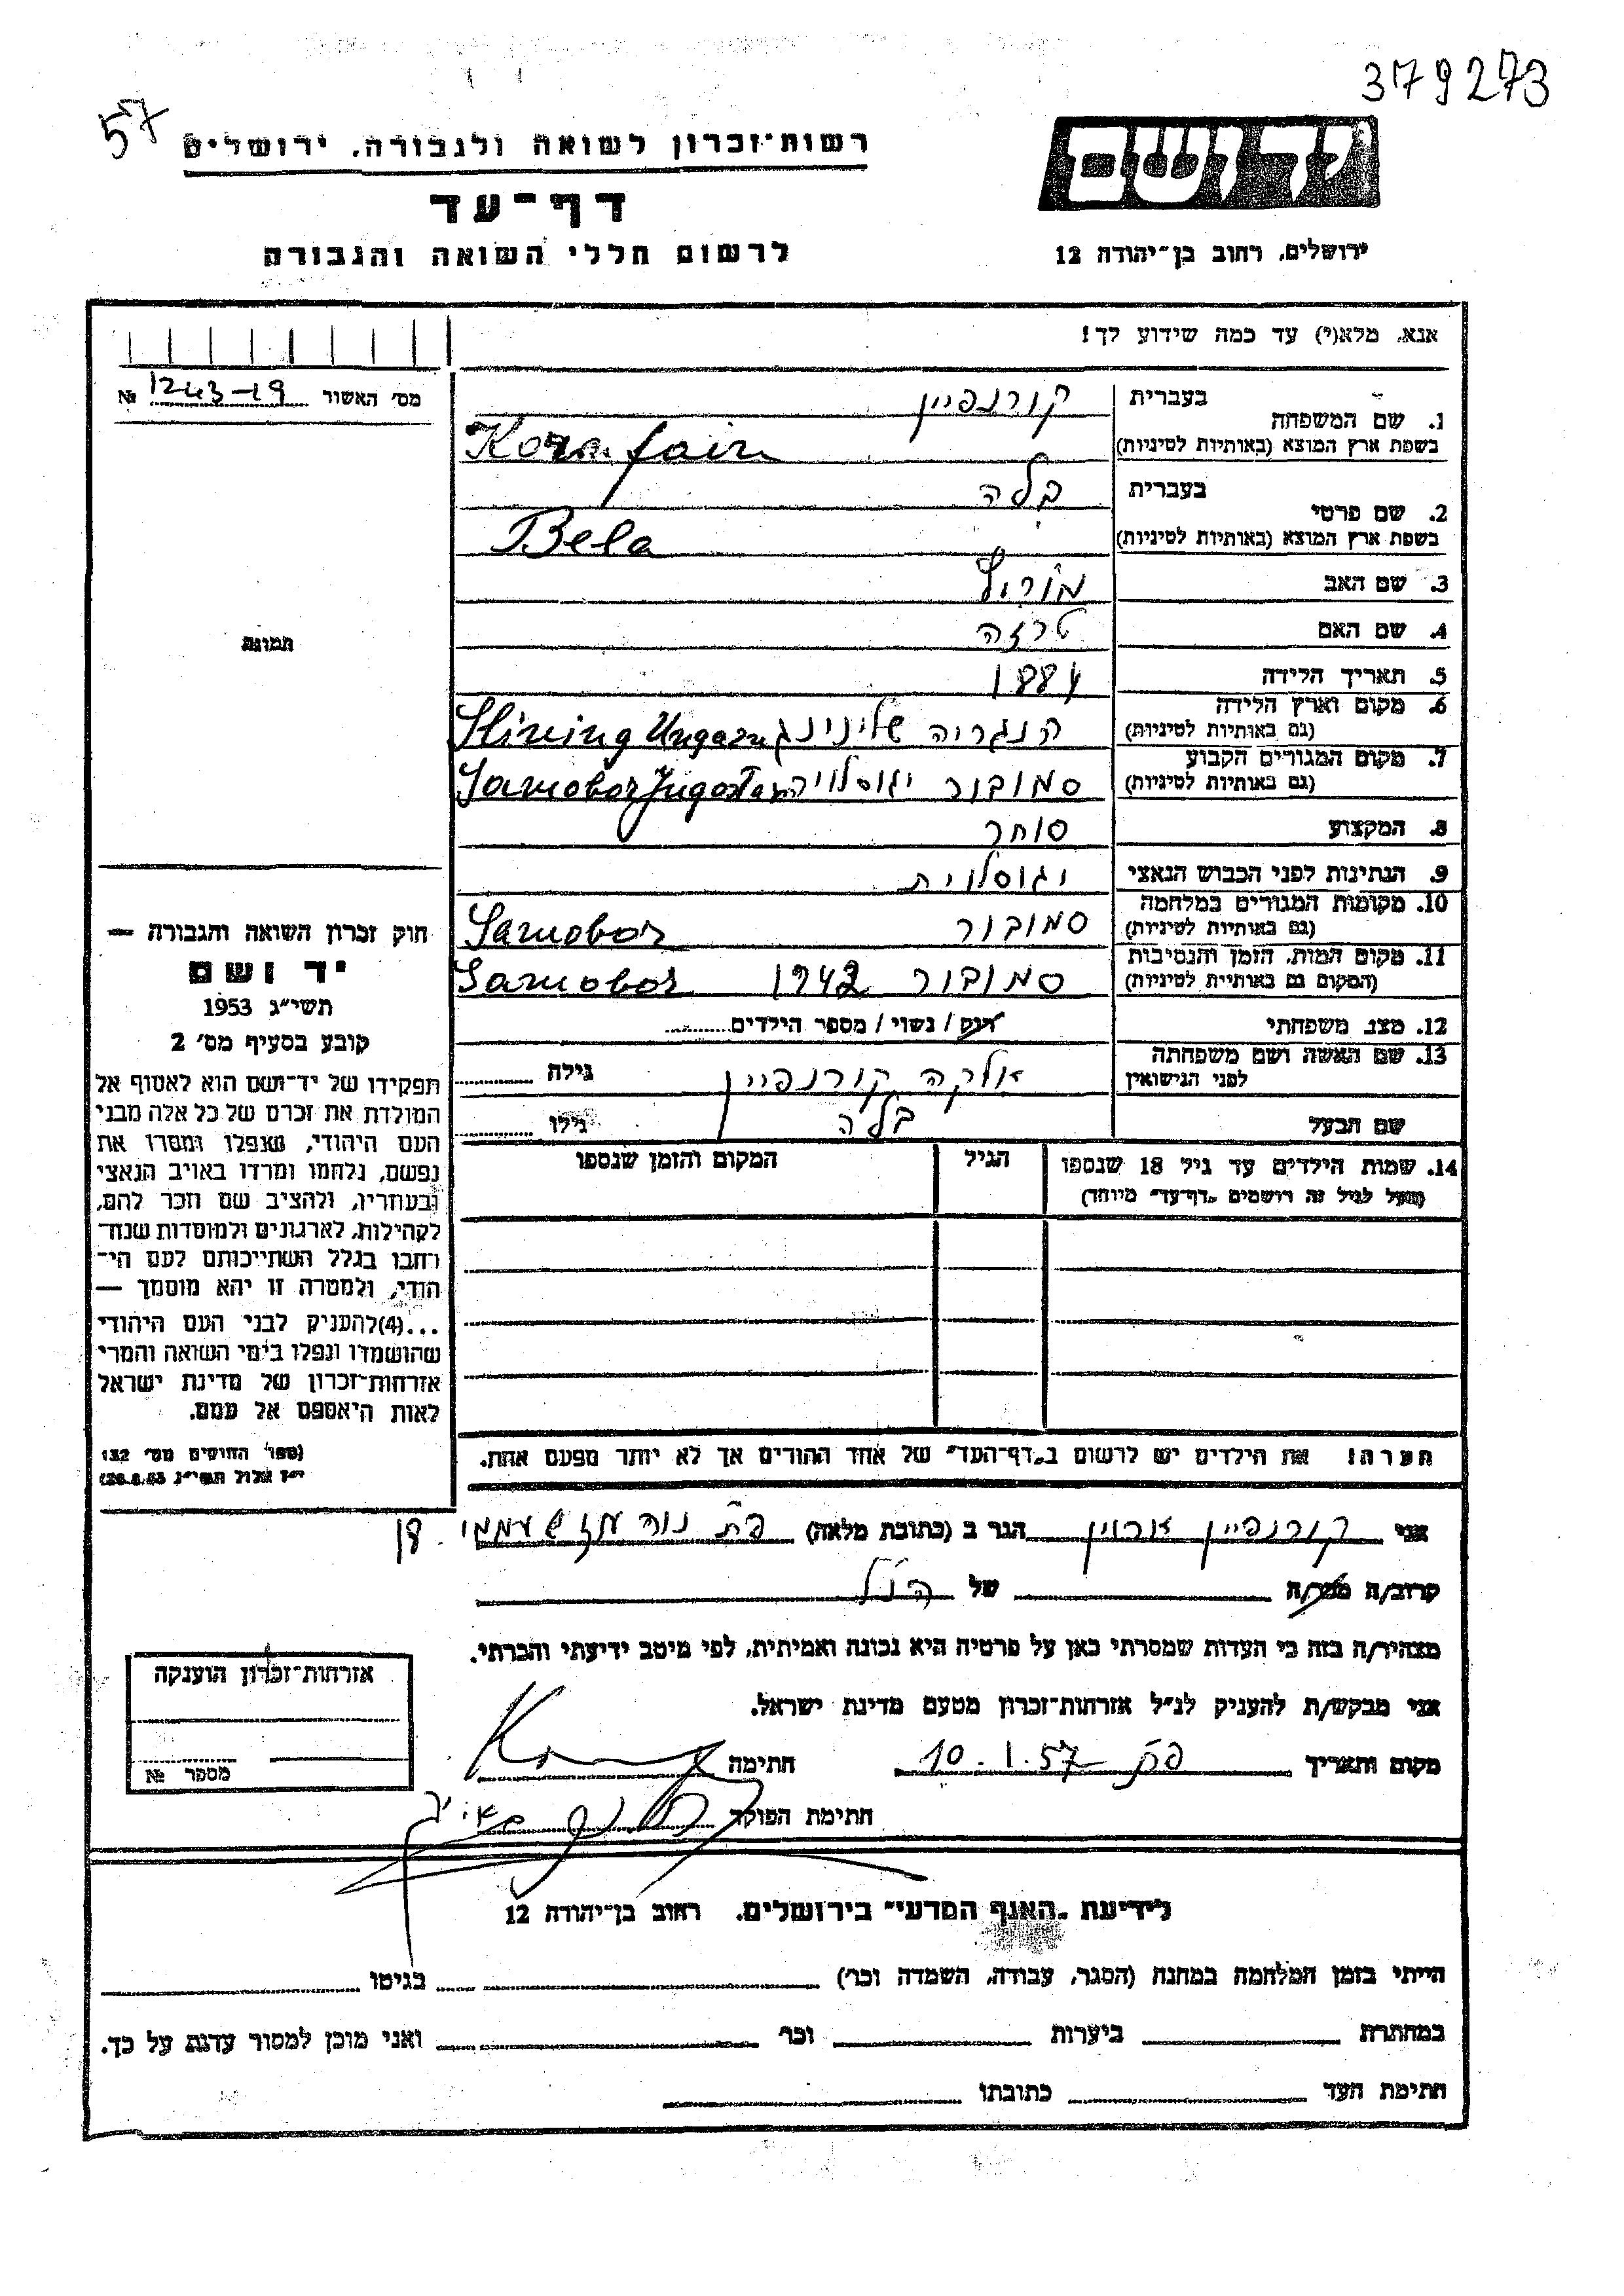 379273
57
רשות־זכרון לשואה ולגבורה, ירושלים
דף־עד
לרשום חללי השואה והגבורה
יד ושם
ירושלים, רחוב בן־יהודה 12
אנא, מלא(י) עד כמה שידוע לך!
מס' האשור 1243-19 №
תמונה
1. שם המשפחה
בעברית קורנפיין
בשפת ארץ המוצא (באותיות לטיניות) Kornfain
2. שם פרטי
בעברית בלה
בשפת ארץ המוצא (באותיות לטיניות) Bela
3. שם האב מוריץ
4. שם האם טרזה
5. תאריך הלידה 1884
6. מקום וארץ הלידה
(גם באותיות לטיניות) הנגריה שלינינג Slining Ungarn
7. מקום המגורים הקבוע
(גם באותיות לטיניות) סמובור יגוסלויה Samobor Jugoslav
8. המקצוע סוחר
9. הנתינות לפני הכבוש הנאצי יגוסלוית
10. מקומות המגורים במלחמה
(גם באותיות לטיניות) סמובור Samobor
11. מקום המות, הזמן והנסיבות
(המקום גם באותיות לטיניות) סמובור 1942 Samobor
12. מצב משפחתי רווק / נשוי / מספר הילדים
13. שם האשה ושם משפחתה
לפני הנישואין אולקה קורנפיין גילה
שם הבעל בלה גילו
14. שמות הילדים עד גיל 18 שנספו
(מעל לגיל זה רושמים „דף־עד" מיוחד)
הגיל
המקום והזמן שנספו
הערה! את הילדים יש לרשום ב„דף־העד" של אחד ההורים אך לא יותר מפעם אחת.
חוק זכרון השואה והגבורה —
יד ושם
תשי"ג 1953
קובע בסעיף מס' 2
תפקידו של יד־ושם הוא לאסוף אל
המולדת את זכרם של כל אלה מבני
העם היהודי, שנפלו ומסרו את
נפשם, נלחמו ומרדו באויב הנאצי
ובעוזריו, ולהציב שם וזכר להם,
לקהילות, לארגונים ולמוסדות שנח־
רבו בגלל השתייכותם לעם הי־
הודי, ולמטרה זו יהא מוסמך —
...(4)להעניק לבני העם היהודי
שהושמדו ונפלו בימי השואה והמרי
אזרחות־זכרון של מדינת ישראל
לאות היאספם אל עמם.
(ספר החוקים מס' 132
י"ז אלול תשי"ג 28.8.53)
אני קורנפיין ארוין הגר ב (כתובת מלאה) פת נוה עוז שעממי 18
קרוב/ה מכר/ה של הנ"ל
מצהיר/ה בזה כי העדות שמסרתי כאן על פרטיה היא נכונה ואמיתית, לפי מיטב ידיעתי והכרתי.
אני מבקש/ת להעניק לנ"ל אזרחות־זכרון מטעם מדינת ישראל.
מקום ותאריך פת 10.1.57 חתימה
חתימת הפוקד
אזרחות־זכרון הוענקה
מספר №
לידיעת „האגף המדעי" בירושלים, רחוב בן־יהודה 12
הייתי בזמן המלחמה במחנה (הסגר, עבודה, השמדה וכו') בגיטו
במחתרת ביערות וכו' ואני מוכן למסור עדות על כך.
חתימת העד כתובתו